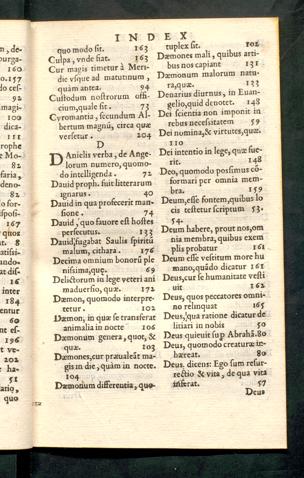 INDEX
quo modo sit. 163
Culpa, vnde fiat. 163
Cur magis timetur à Meri-
die vsque ad matutinum,
quàm antea. 94
Custodum nostrorum offi-
cium, quale sit. 73
Cyromantia, secundum Al-
bertum magnũ, circa quæ
versetur. 204
D
Danielis verba, de Ange-
lorum numero, quomo-
do intelligenda. 72
Dauid proph. fuit litterarum
ignarus. 40
Dauid in qua profecerit man-
sione. 74
Dauid, quo fauore est hostes
persecutus. 133
Dauid, fugabat Saulis spiritũ
malum, cithara. 176
Decima omnium bonorũ ple
nissima, quę. 69
Delictorum in lege veteri ani
maduersio, quæ. 172
Dæmon, quomodo interpre-
tetur. 102
Dæmon, in quæ se transferat
animalia in nocte 106
Dæmonum genera, quot, &
quæ. 103
Dæmones, cur præualeãt ma-
gis in die, quàm in nocte.
104
Dæmonum differentia, quo-
tuplex sit. 102
Dæmones mali, quibus arti-
bus nos capiant 131
Dæmonum malorum natu-
ra, quæ. 133
Denarius diurnus, in Euan-
gelio, quid denotet. 148
Dei scientia non imponit in
rebus necessitatem 59
Dei nomina, & virtutes, quæ.
110
Dei intentio in lege, quæ fue-
rit. 148
Deo, quomodo possimus cõ-
formari per omnia mem-
bra. 159
Deum, esse fontem, quibus lo
cis testetur scriptum 53.
54.
Deum habere, prout nos, om
nia membra, quibus exem
plis probatur 161
Deum esse vestitum more hu
mano, quãdo dicatur 161
Deus, cur se humanitate vesti
uit 162
Deus, quos peccatores omni-
no relinquat 165
Deus, qua ratione dicatur de
litiari in nobis 50
Deus quieuit sup Abrahã. 80
Deus, quomodo creaturæ in-
hæreat. 80
Deus, dicens: Ego sum resur-
rectio & vita, de qua vita
inferat. 57
Deus